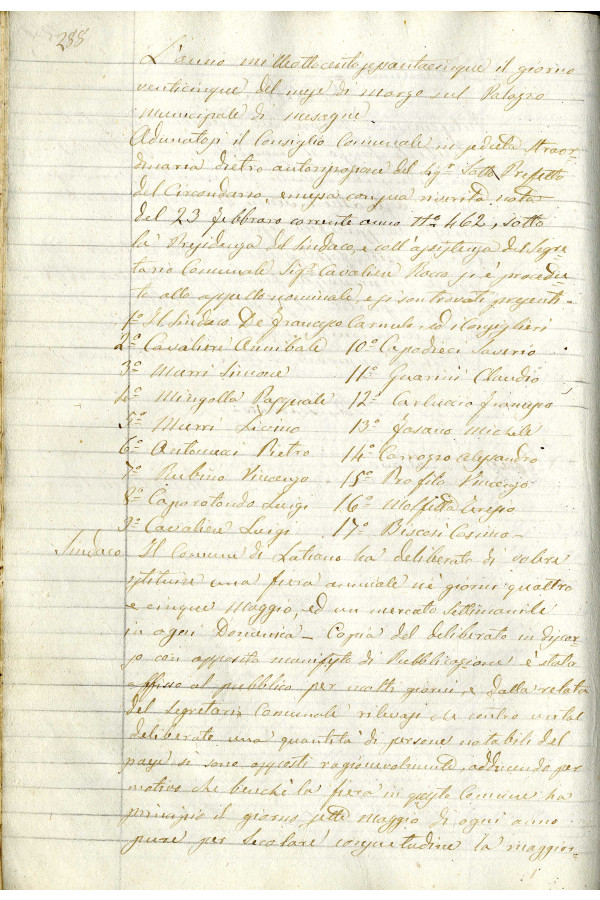 288
L'anno milleottocentosessantacinque il giorno
venticinque del mese di marzo sul Palazzo
Municipale di Mesagne.
Adunatosi il Consiglio Comunale in seduta straor-
dinaria dietro autorizzazione del Sigr Sotto Prefetto
del Circondario, emessa con sua riverita nota
del 23 febbraro corrente anno No 462, sotto
la Presidenza del Sindaco, e coll'assistenza del Segre-
tario Comunale Sigr Cavaliere Rocco si è procedu-
to allo appello nominale, e si son trovati presenti -
1o Il Sindaco De Francesco Carmelo, ed i Consiglieri
2o Cavaliere Annibale 10o Capodieci Saverio
3o Murri Simone 11o Guarini Claudio
4o Mingolla Pasquale 12o Carluccio Francesco
5o Murri Livino 13o Fasano Michele
6o Antonucci Pietro 14o Carrozzo Alessandro
7o Rubino Vincenzo 15o Profilo Vincenzo
8o Caporotondo Luigi 16o Molfetta
9o Cavaliere Luigi 17o Biscosi Cosimo -
Sindaco Il Comune di Latiano ha deliberato di volere
istituire una fiera annuale ne' giorni quattro
e cinque Maggio, ed un mercato Settimanile
in ogni Domenica - Copia del deliberato in discor-
so con apposito manifesto di Pubblicazione è stata
affissa al pubblico per molti giorni, e dalla relata
del Segretario Comunale rilevasi che contro un tal
deliberato una quantità di persone notabili del
paese si sono opposti ragionevolmente, adducendo per
motivo che benchè la fiera in questo Comune ha
principio il giorno sette Maggio di ogni anno
pure per secolare consuetudine la maggior-